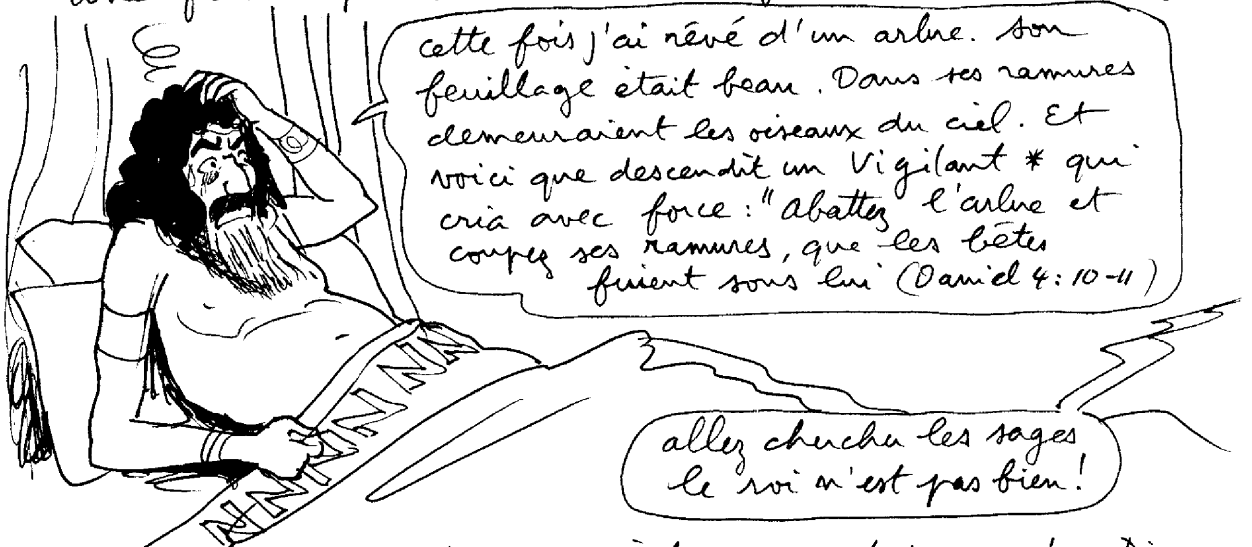 cette fois j'ai rêvé d'un arbre. son
feuillage était beau. Dans ses ramures
demeuraient les oiseaux du ciel. Et
voici que descendit un Vigilant * qui
cria avec force : "abattez l'arbre et
coupez ses ramures, que les bêtes
fuient sous lui (Daniel 4 : 10-11)
NNNNNNN
allez chercher les sages
le roi n'est pas bien !